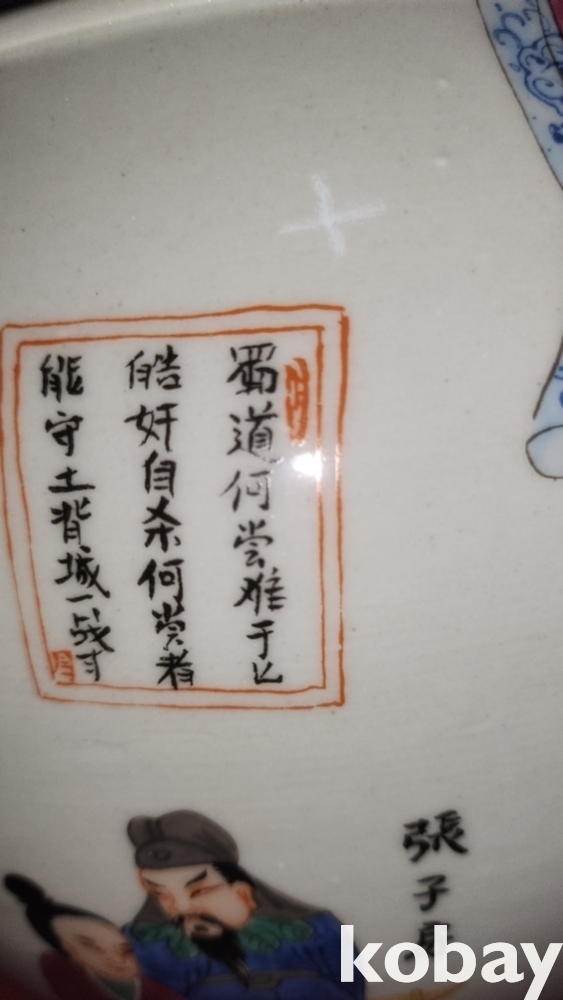 蜀道何尝难于
皓奸自杀何尝者
能守土背城一战寸
張子
kobay